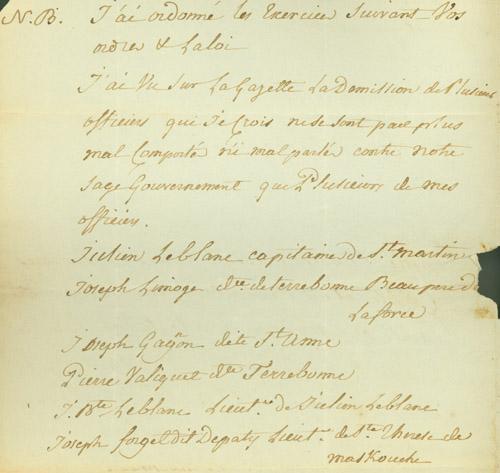 N.B. J'ai ordonné les Exercice Suivant Vos
ordres & Laloi
J'ai Vu Sur La Gazette La Demission de Plusieurs
officiers qui Je Crois nese sont pas plus
mal Comporté ni mal parlé contre notre
Sage Gouvernement que Plusieurs de mes
officiers.
Julien Leblanc capitaine de St. martin
Joseph Limoge de terrebonne Beaupere de
Laforce
Joseph Gagnon St. Anne
Pierre Valiquet Terrebonne
J. Bte Leblanc Lieut. de Julien Leblanc
Joseph forget dit Depaty Lieut. de Ste Therese de
maskouche